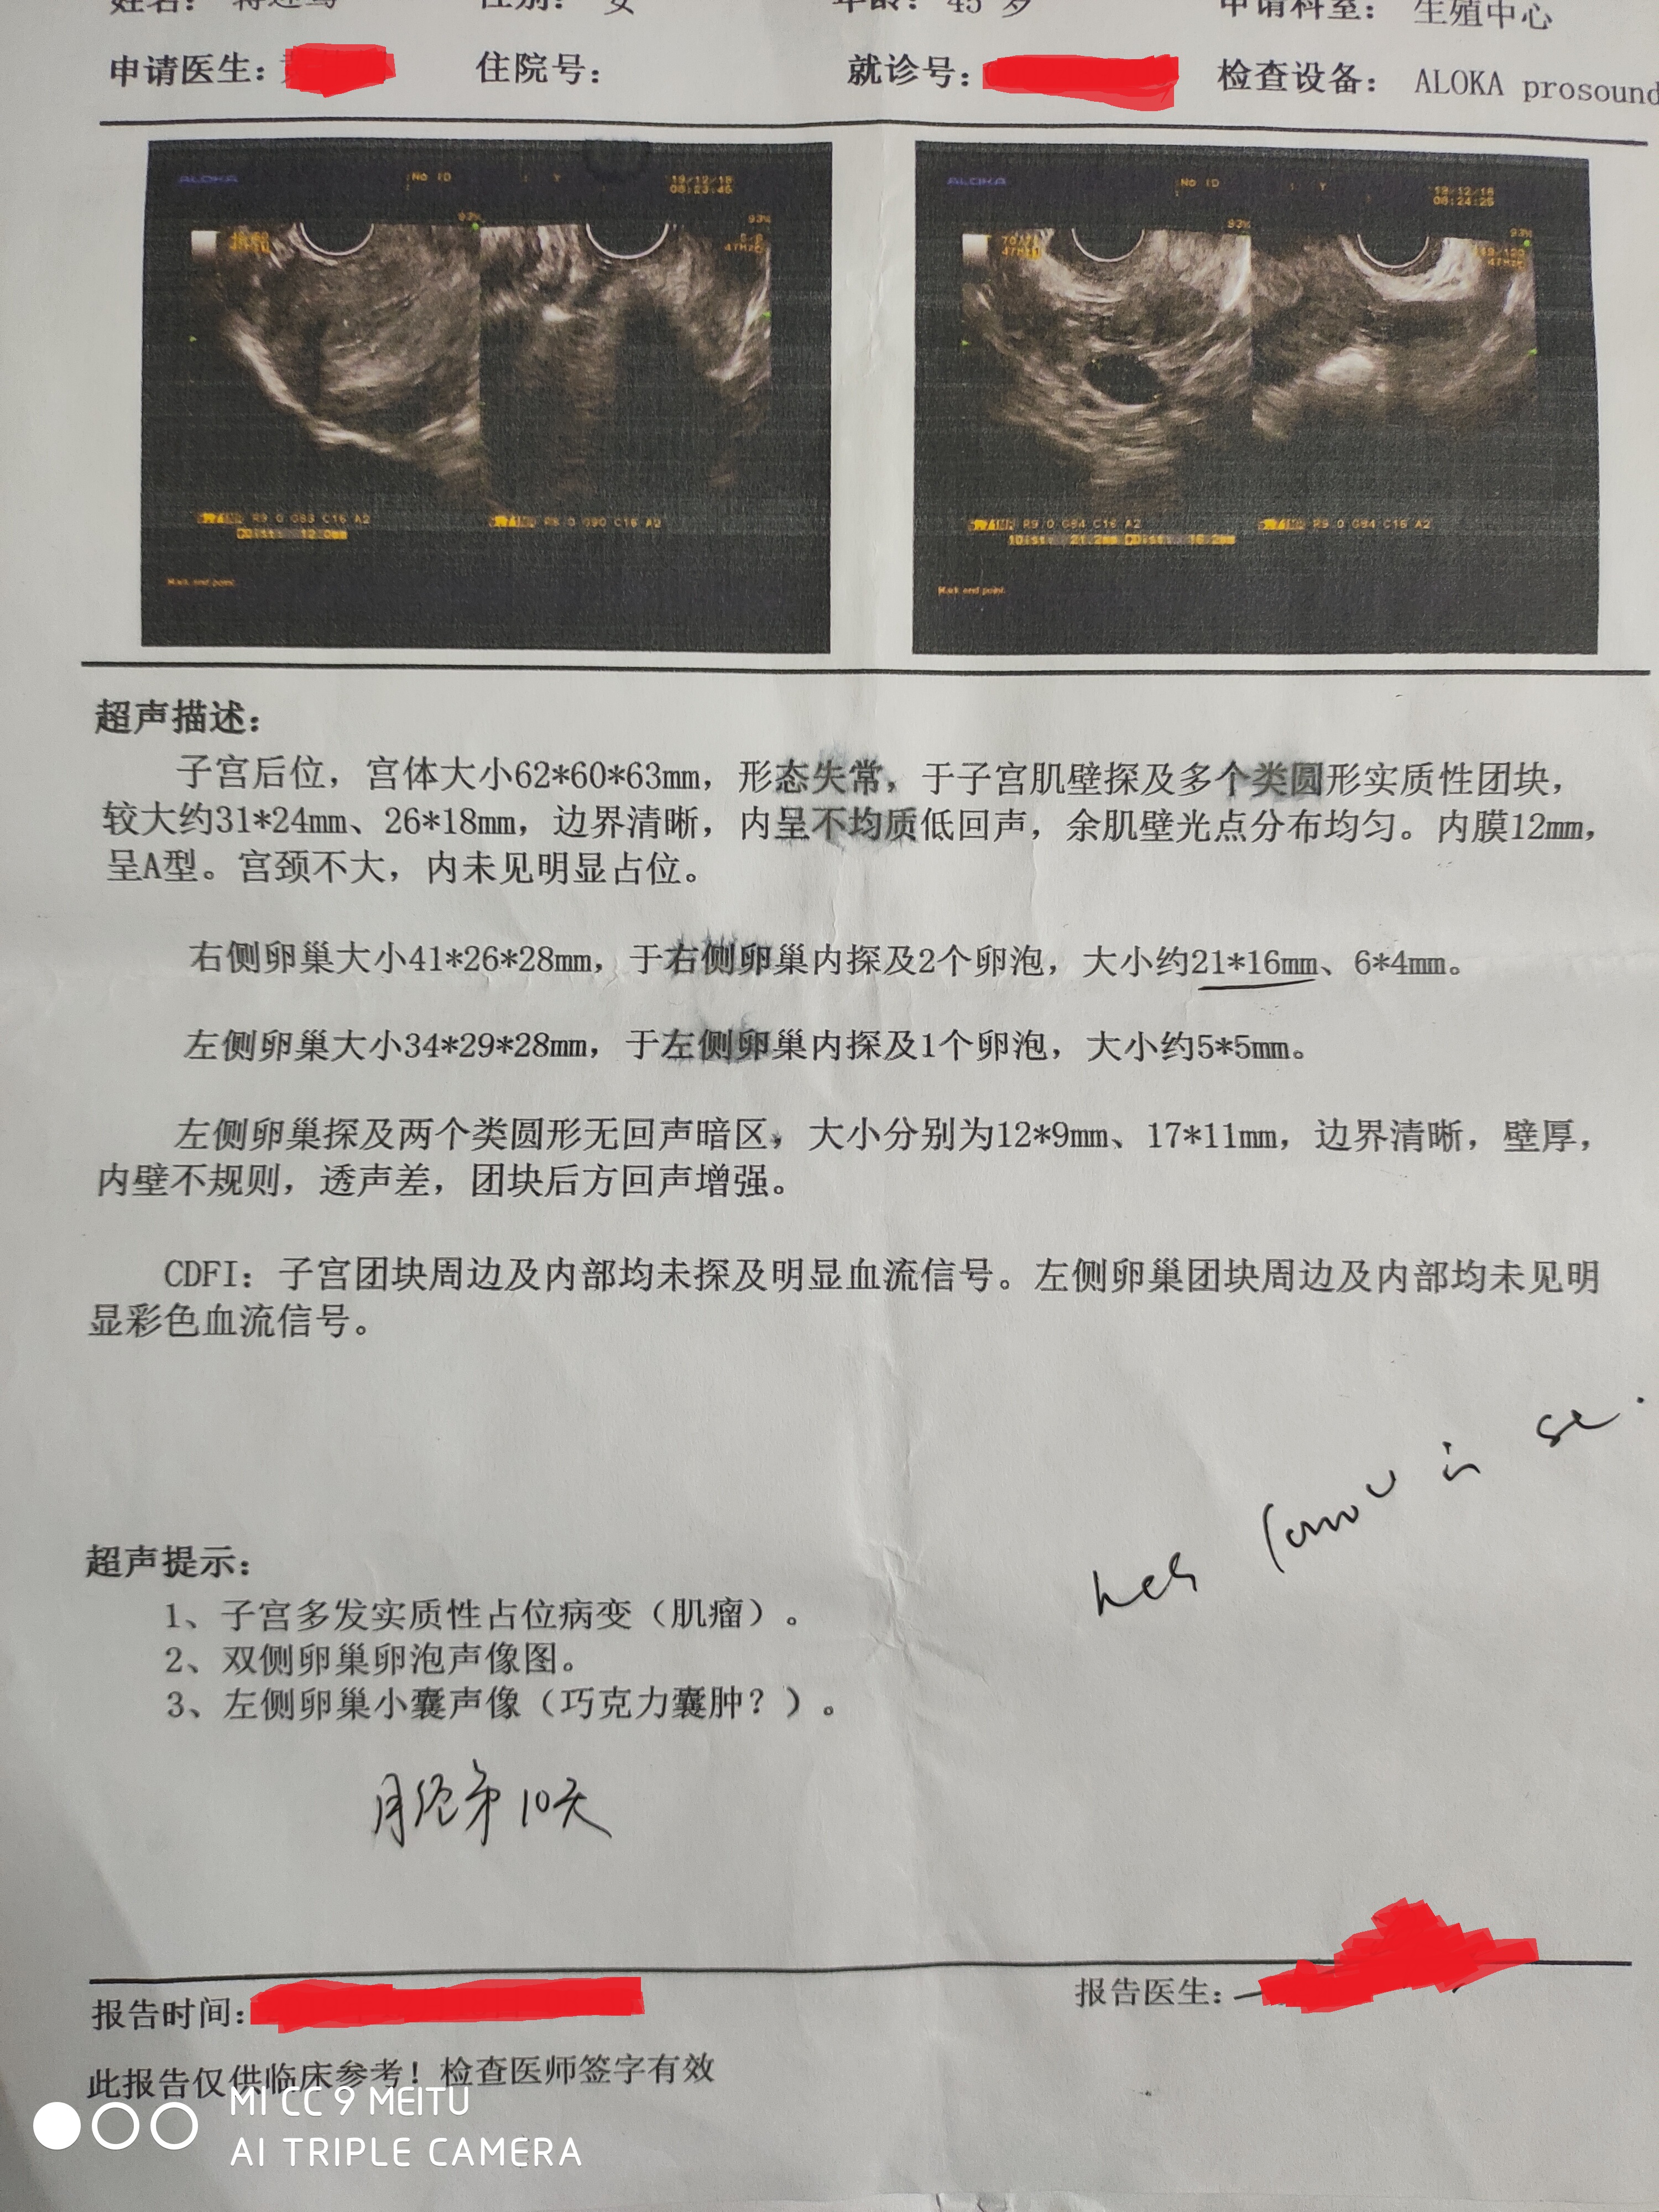 性别： 女 年龄： 45 岁 申请科室： 生殖中心
申请医生： 住院号： 就诊号： 检查设备： ALOKA prosound
ALOKA No ID 19/12/18
08:23:45
93% 93%
47Hz
ALOKA No ID 19/12/18
08:24:25
93% 93%
R9.0 G83 C16 A2 R8.0 G90 C16 A2
Dist: 12.0mm
Mark end point.
R9.0 G84 C16 A2 R9.0 G84 C16 A2
1Dist: 21.2mm Dist: 16.2mm
Mark end point.
超声描述：
子宫后位，宫体大小62*60*63mm，形态失常，于子宫肌壁探及多个类圆形实质性团块，
较大约31*24mm、26*18mm，边界清晰，内呈不均质低回声，余肌壁光点分布均匀。内膜12mm，
呈A型。宫颈不大，内未见明显占位。
右侧卵巢大小41*26*28mm，于右侧卵巢内探及2个卵泡，大小约21*16mm、6*4mm。
左侧卵巢大小34*29*28mm，于左侧卵巢内探及1个卵泡，大小约5*5mm。
左侧卵巢探及两个类圆形无回声暗区，大小分别为12*9mm、17*11mm，边界清晰，壁厚，
内壁不规则，透声差，团块后方回声增强。
CDFI：子宫团块周边及内部均未探及明显血流信号。左侧卵巢团块周边及内部均未见明
显彩色血流信号。
超声提示：
1、子宫多发实质性占位病变（肌瘤）。
2、双侧卵巢卵泡声像图。
3、左侧卵巢小囊声像（巧克力囊肿？）。
月经第10天
报告时间： 报告医生：
此报告仅供临床参考！检查医师签字有效
MI CC 9 MEITU
AI TRIPLE CAMERA